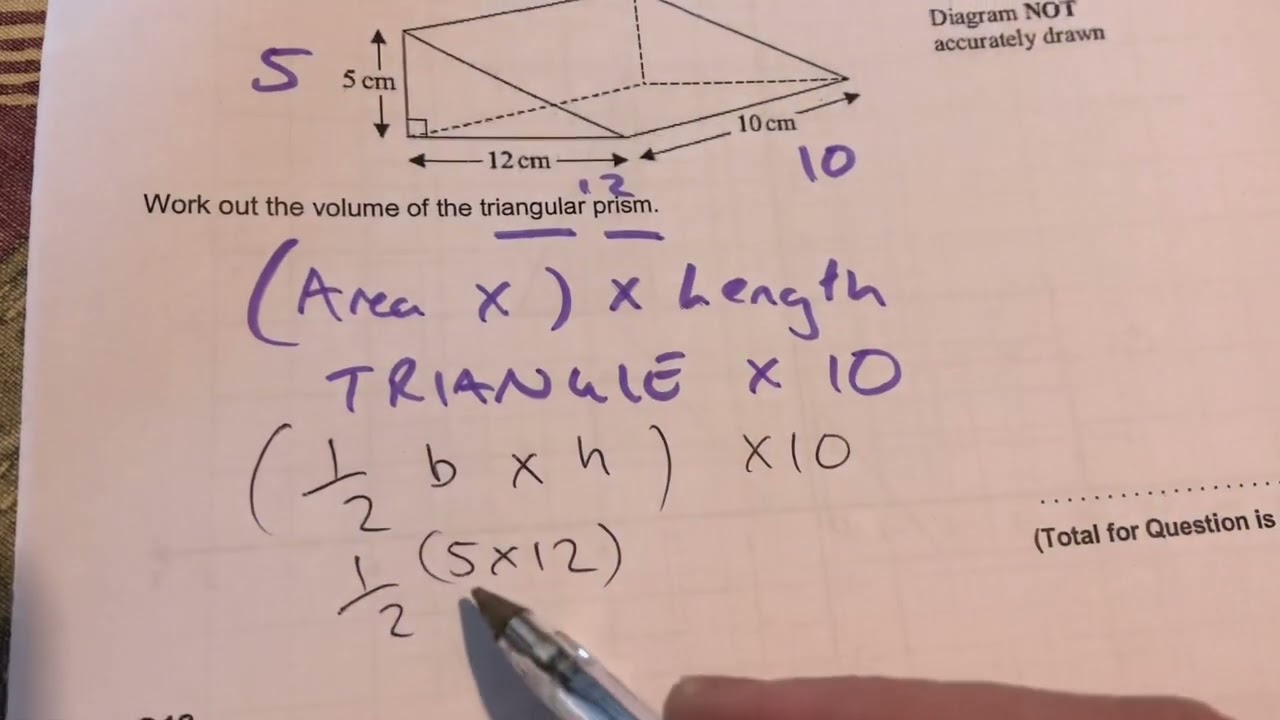 Diagram NOT
accurately drawn
5
5 cm
10 cm
12 cm
10
12
Work out the volume of the triangular prism.
(Area x) x Length
TRIANGLE x 10
(1/2 b x h) x10
1/2 (5x12)
(Total for Question is